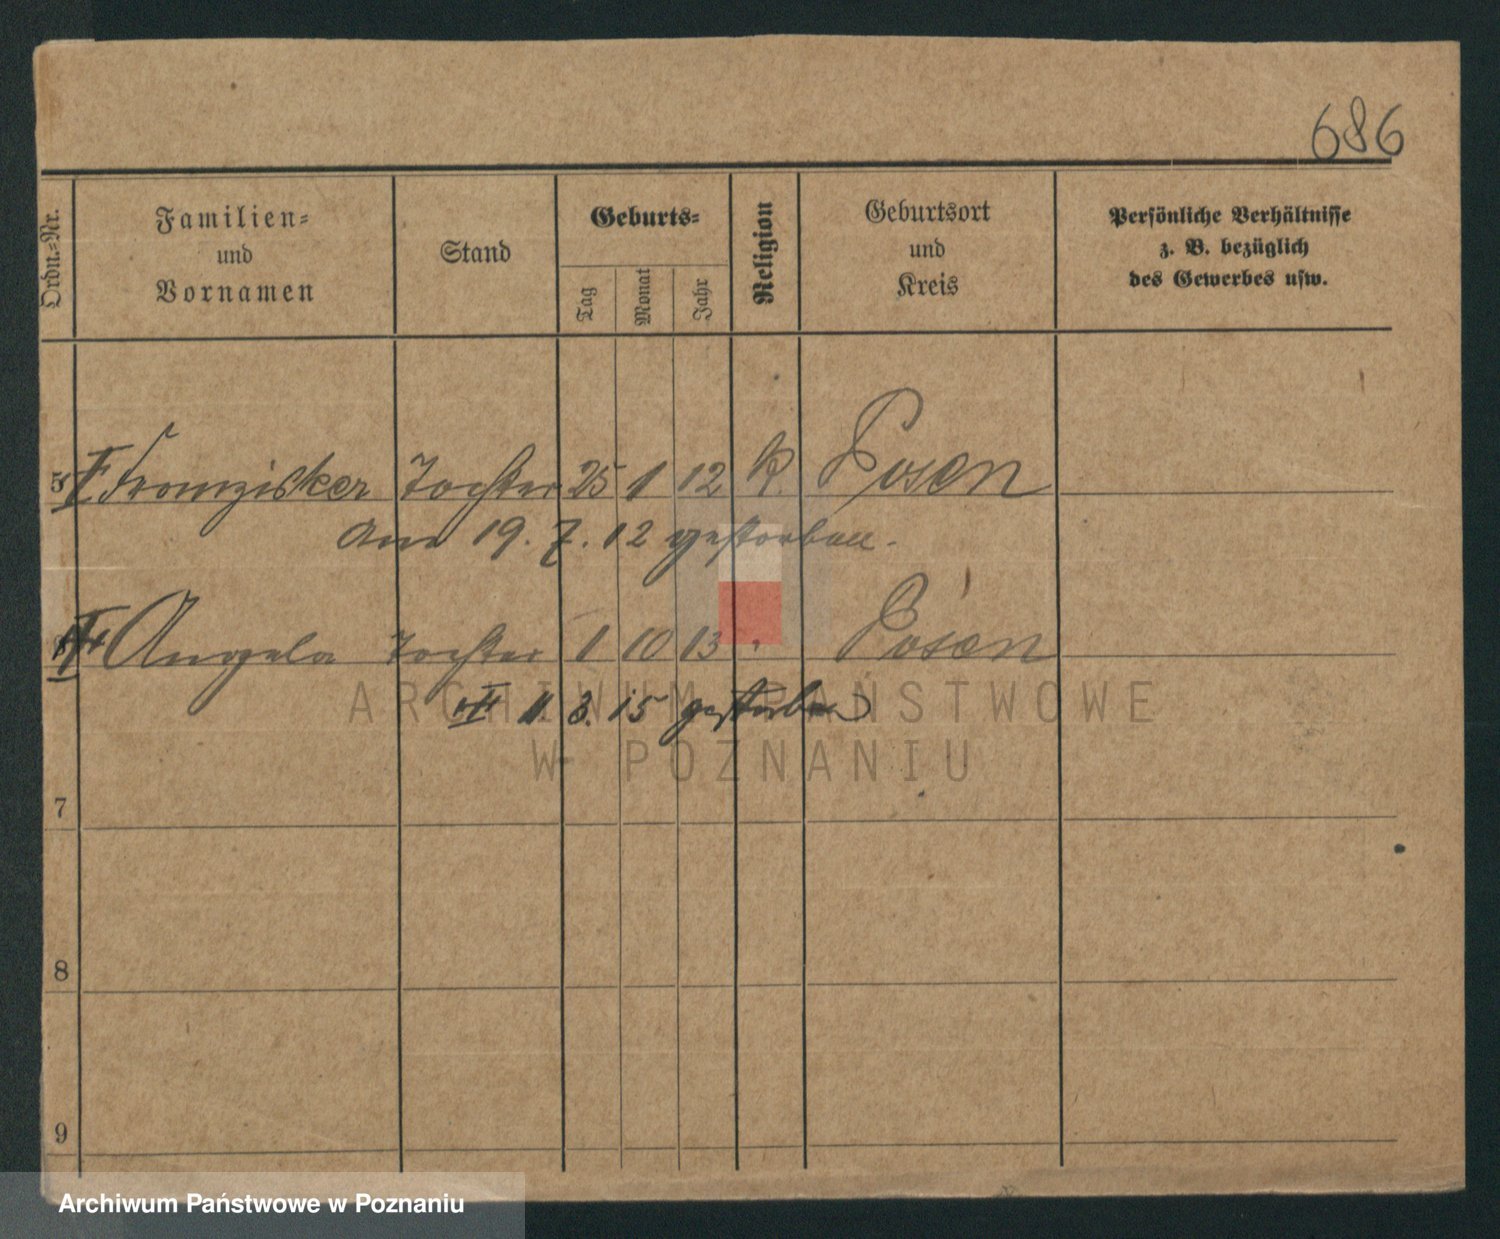 686
Ordn.-Nr. Familien- und Vornamen Stand Geburts- Tag Monat Jahr Religion Geburtsort und Kreis Persönliche Verhältnisse z. B. bezüglich des Gewerbes usw.
5 Franzisker Tochter 25 1 12 K. Posen
am 19. 7. 12 gestorben.
Angela Tochter 1 10 13 " Posen
11 3. 15 gestorben
ARCHIWUM PAŃSTWOWE
W POZNANIU
7
8
9
Archiwum Państwowe w Poznaniu